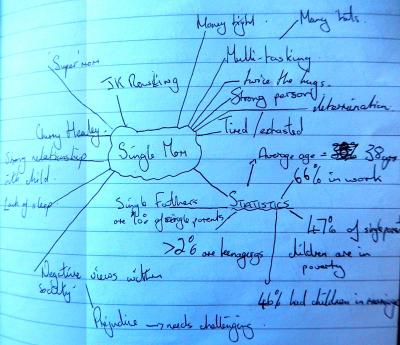 Money tight.
Many hats.
'Super mom
Multi-tasking
JK Rowling
twice the hugs.
Strong person
determination.
Tired/exhausted
Single Mom
Strong relationship
with child.
Lack of sleep.
Average age =
38yrs
66% in work
Single Fathers
are 10% of single parents
STATISTICS
47% of single parent
children are in
poverty
>2% are teenagers
Negative views within
society
46% had children in marriage
Prejudice → needs challenging.